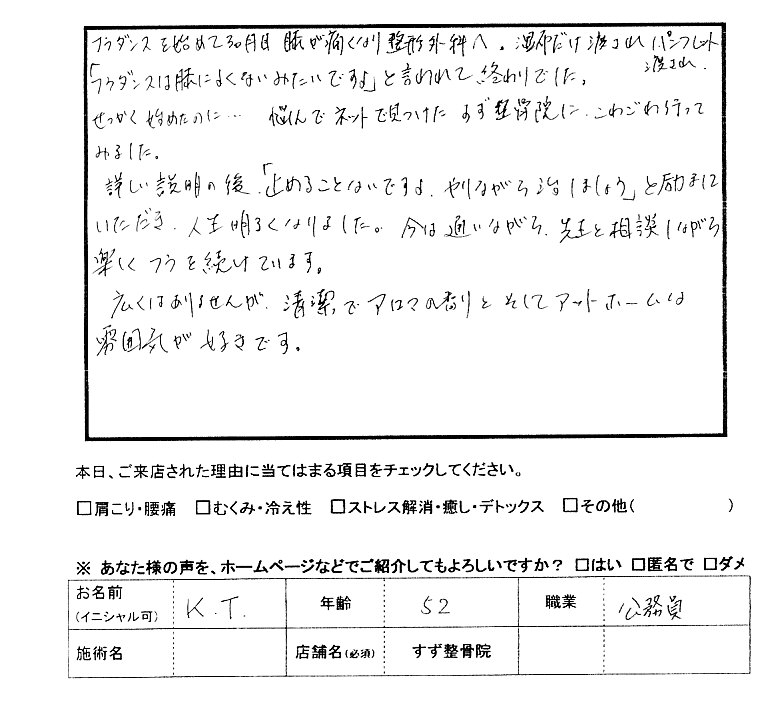 フラダンスを始めて3ヶ月目 膝が痛くなり 整形外科へ。湿布だけ渡され パンフレット渡され、
「フラダンスは膝によくないみたいですよ」と言われて終わりでした。
せっかく始めたのに… 悩んでネットで見つけた すず整骨院に、こわごわ行って
みました。
詳しい説明の後、「止めることないですよ、やりながら治しましょう」と励まして
いただき、人生明るくなりました。今は通いながら、先生と相談しながら
楽しくフラを続けています。
広くはありませんが、清潔でアロマの香りとそしてアットホームな
雰囲気が好きです。
本日、ご来店された理由に当てはまる項目をチェックしてください。
□肩こり・腰痛 □むくみ・冷え性 □ストレス解消・癒し・デトックス □その他( )
※ あなた様の声を、ホームページなどでご紹介してもよろしいですか？ □はい □匿名で □ダメ
お名前 (イニシャル可) K.T. 年齢 52 職業 公務員
施術名 店舗名(必須) すず整骨院